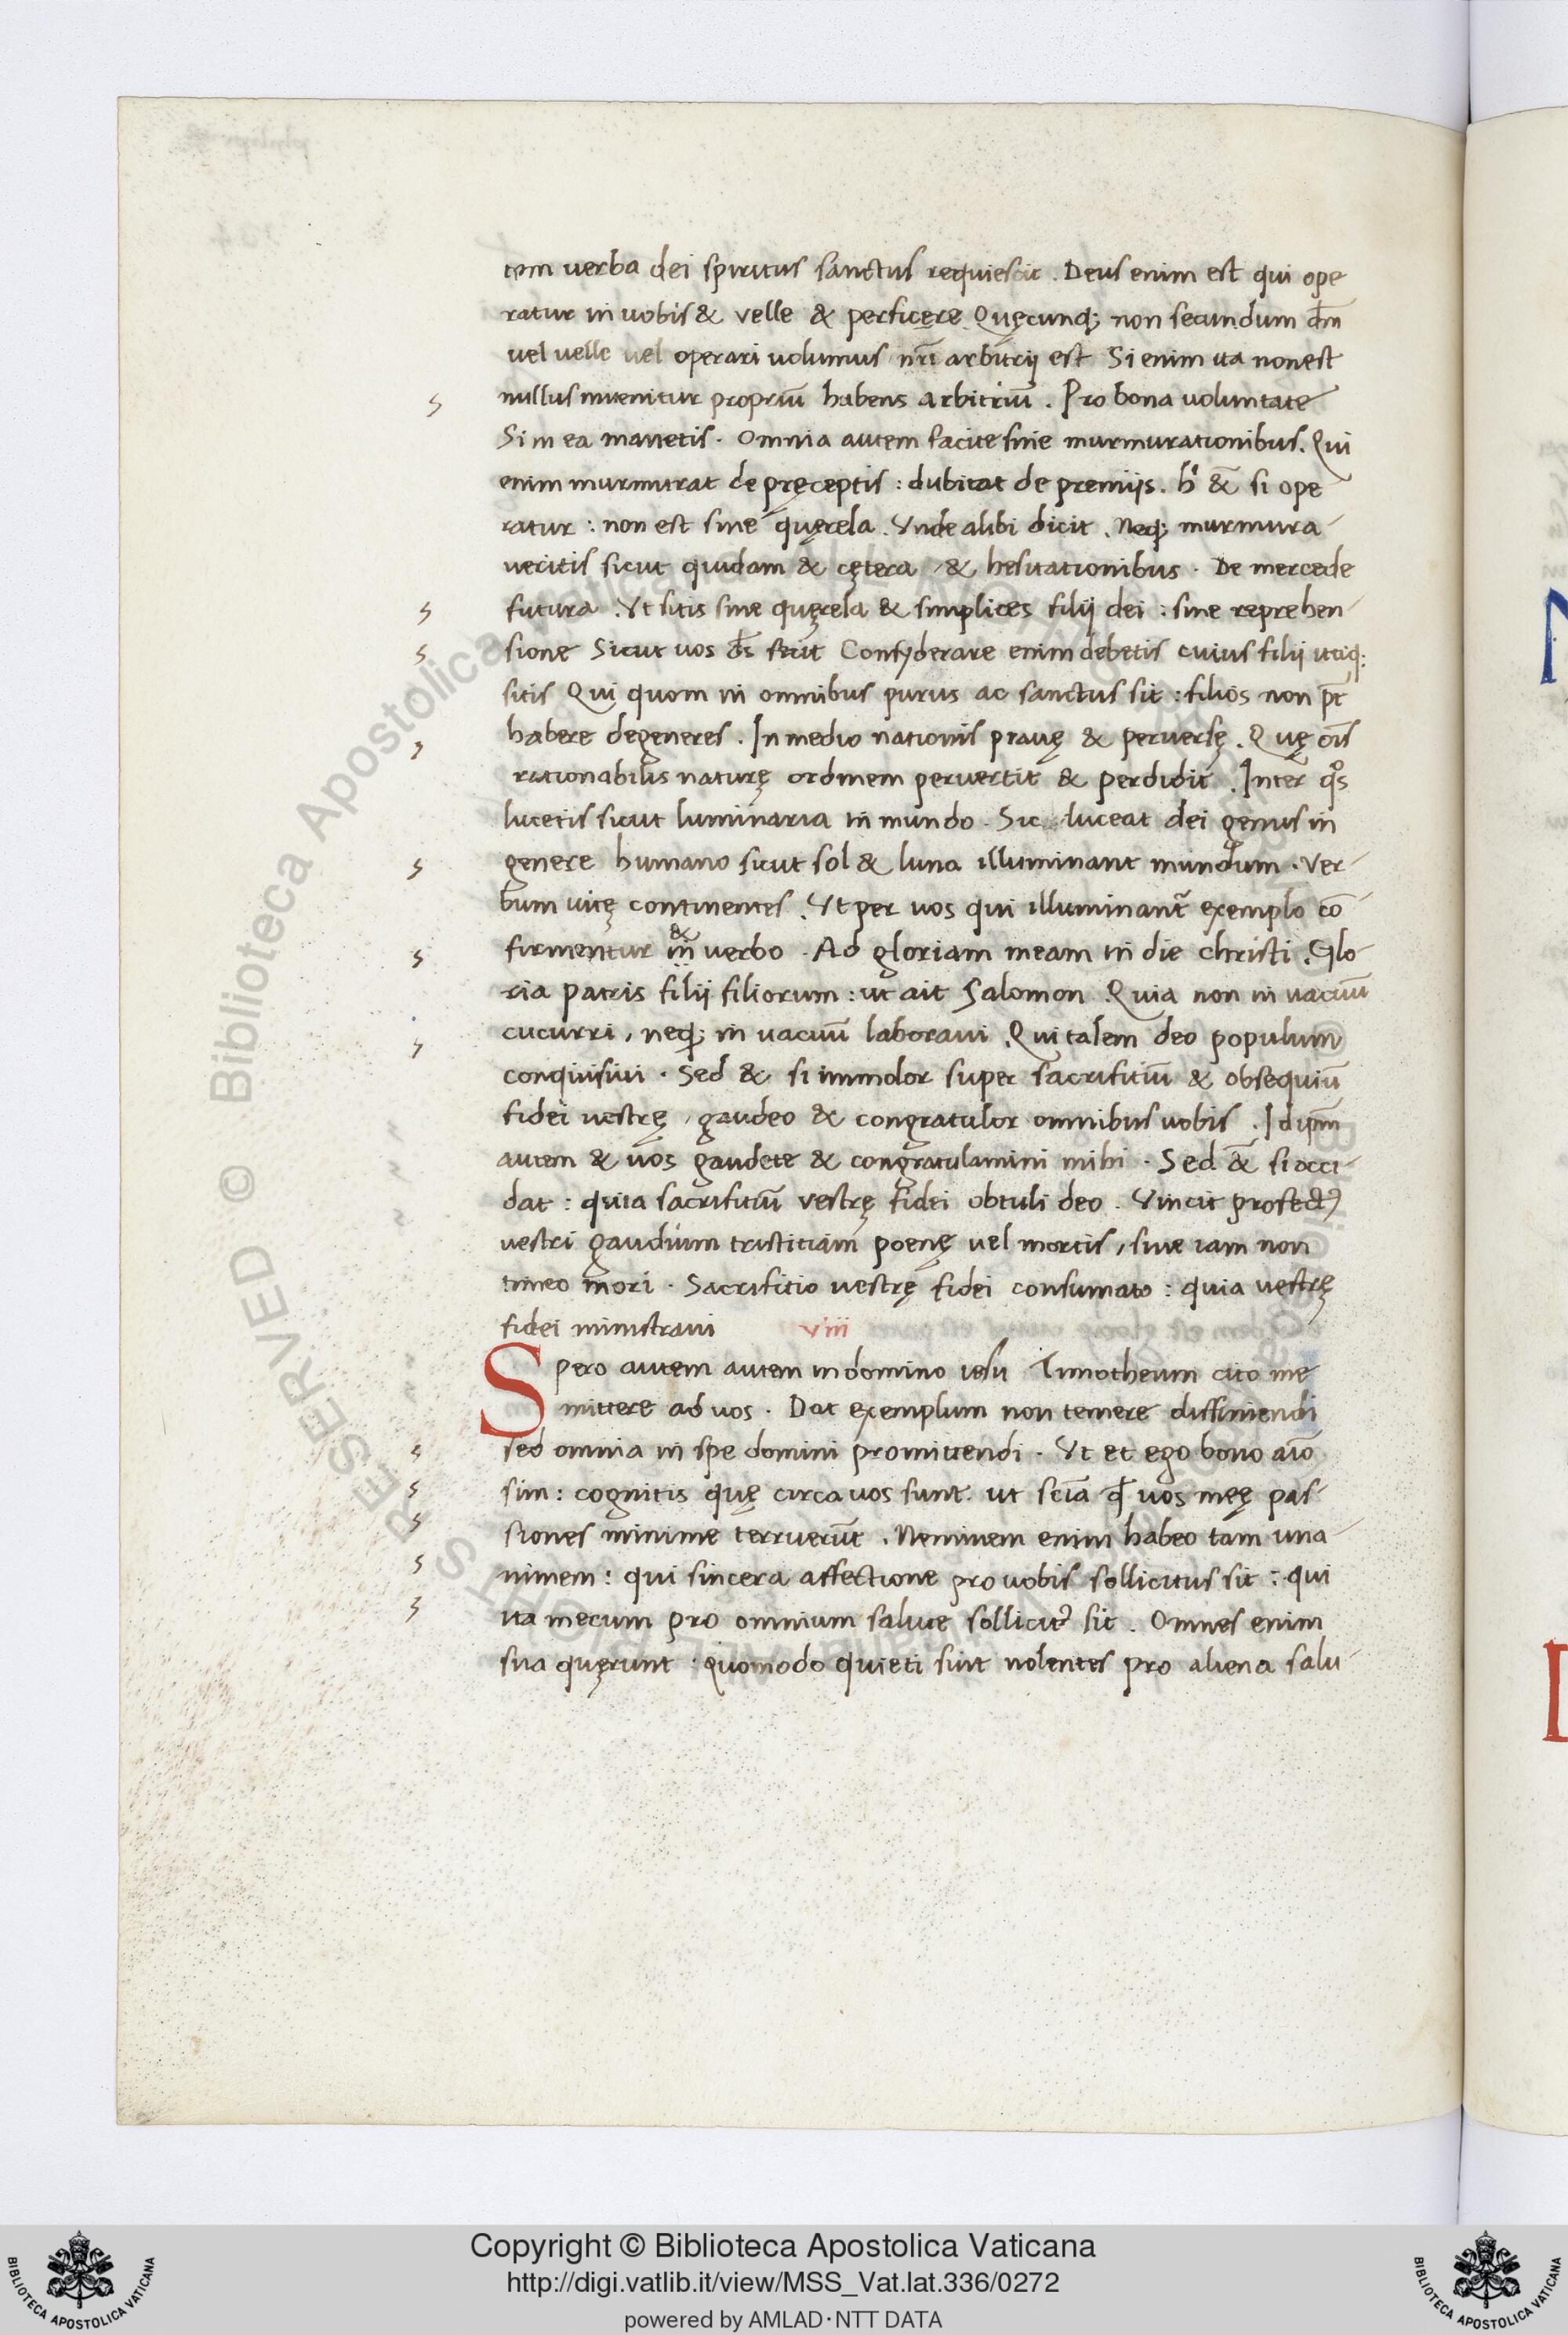 tem verba dei spiritus sanctus requiescit . Deus enim est qui ope
ratur in uobis & velle & perficęre Quęcunq; non secundum dm̄
uel uelle uel operari uolumus nrī arbitrij est Si enim ita non est
nullus inuenitur propriū habens arbitriū . Pro bona uoluntate
Si in ea manetis . Omnia autem facite sine murmurationibus . Qui
enim murmurat de pręceptis : dubitat de premiis . h' & si ope
ratur : non est sine quęrela . Vnde alibi dicit . Neq; murmura
ueritis sicut quidam & cętera , & hesitationibus . De mercede
futura . Vt sitis sine quęrela & simplices filij dei : sine reprehen
sione Sicut uos ds̄ fecit Consyderare enim debetis cuius filij utiq;
sitis Qui quom in omnibus purus ac sanctus sit : filios non pt̄
habere degeneres . In medio nationis prauę & peruersę . Quę oīs
rationabilis naturę ordinem peruertit & perdidit . Inter qos
lucetis sicut luminaria in mundo . Sic luceat dei genus in
genere humano sicut sol & luna illuminant mundum . Ver
bum uitę continentes . Vt per uos qui illuminant~ exemplo cō
firmentur & in verbo . Ad gloriam meam in die christi . Glo
ria patris filij filiorum : ut ait Salomon . Quia non in uacuū
cucurri , neq; in uacuū laboraui . Qui talem deo populum
conquisiui . Sed & si immolor super sacrifitiū & obsequiū
fidei uestrę , gaudeo & congratulor omnibus uobis . Idipm̄
autem & uos gaudete & congratulamini mihi . Sed & si occi
dat : quia sacrifitiū vestrę fidei obtuli deo . Vincit profect9
uestri gaudium tristitiam poenę uel mortis , siue iam non
timeo mori . Sacrifitio uestrę fidei consumato : quia uestrę
fidei ministraui viii
Spero autem autem in domino iesu Timotheum cito me
mittere ad uos . Dat exemplum non temere diffiniendi
sed omnia in spe domini promittendi . Vt et ego bono aīo
sim : cognitis quę circa uos sunt . ut sciā qđ uos meę pas
siones minime terruerūt . Neminem enim habeo tam una
nimem : qui sincera affectione pro uobis sollicitus sit : qui
ita mecum pro omnium salute sollicit9 sit . Omnes enim
sua quęrunt : Quomodo quieti sint nolentes pro aliena salu
Copyright © Biblioteca Apostolica Vaticana
http://digi.vatlib.it/view/MSS_Vat.lat.336/0272
powered by AMLAD·NTT DATA